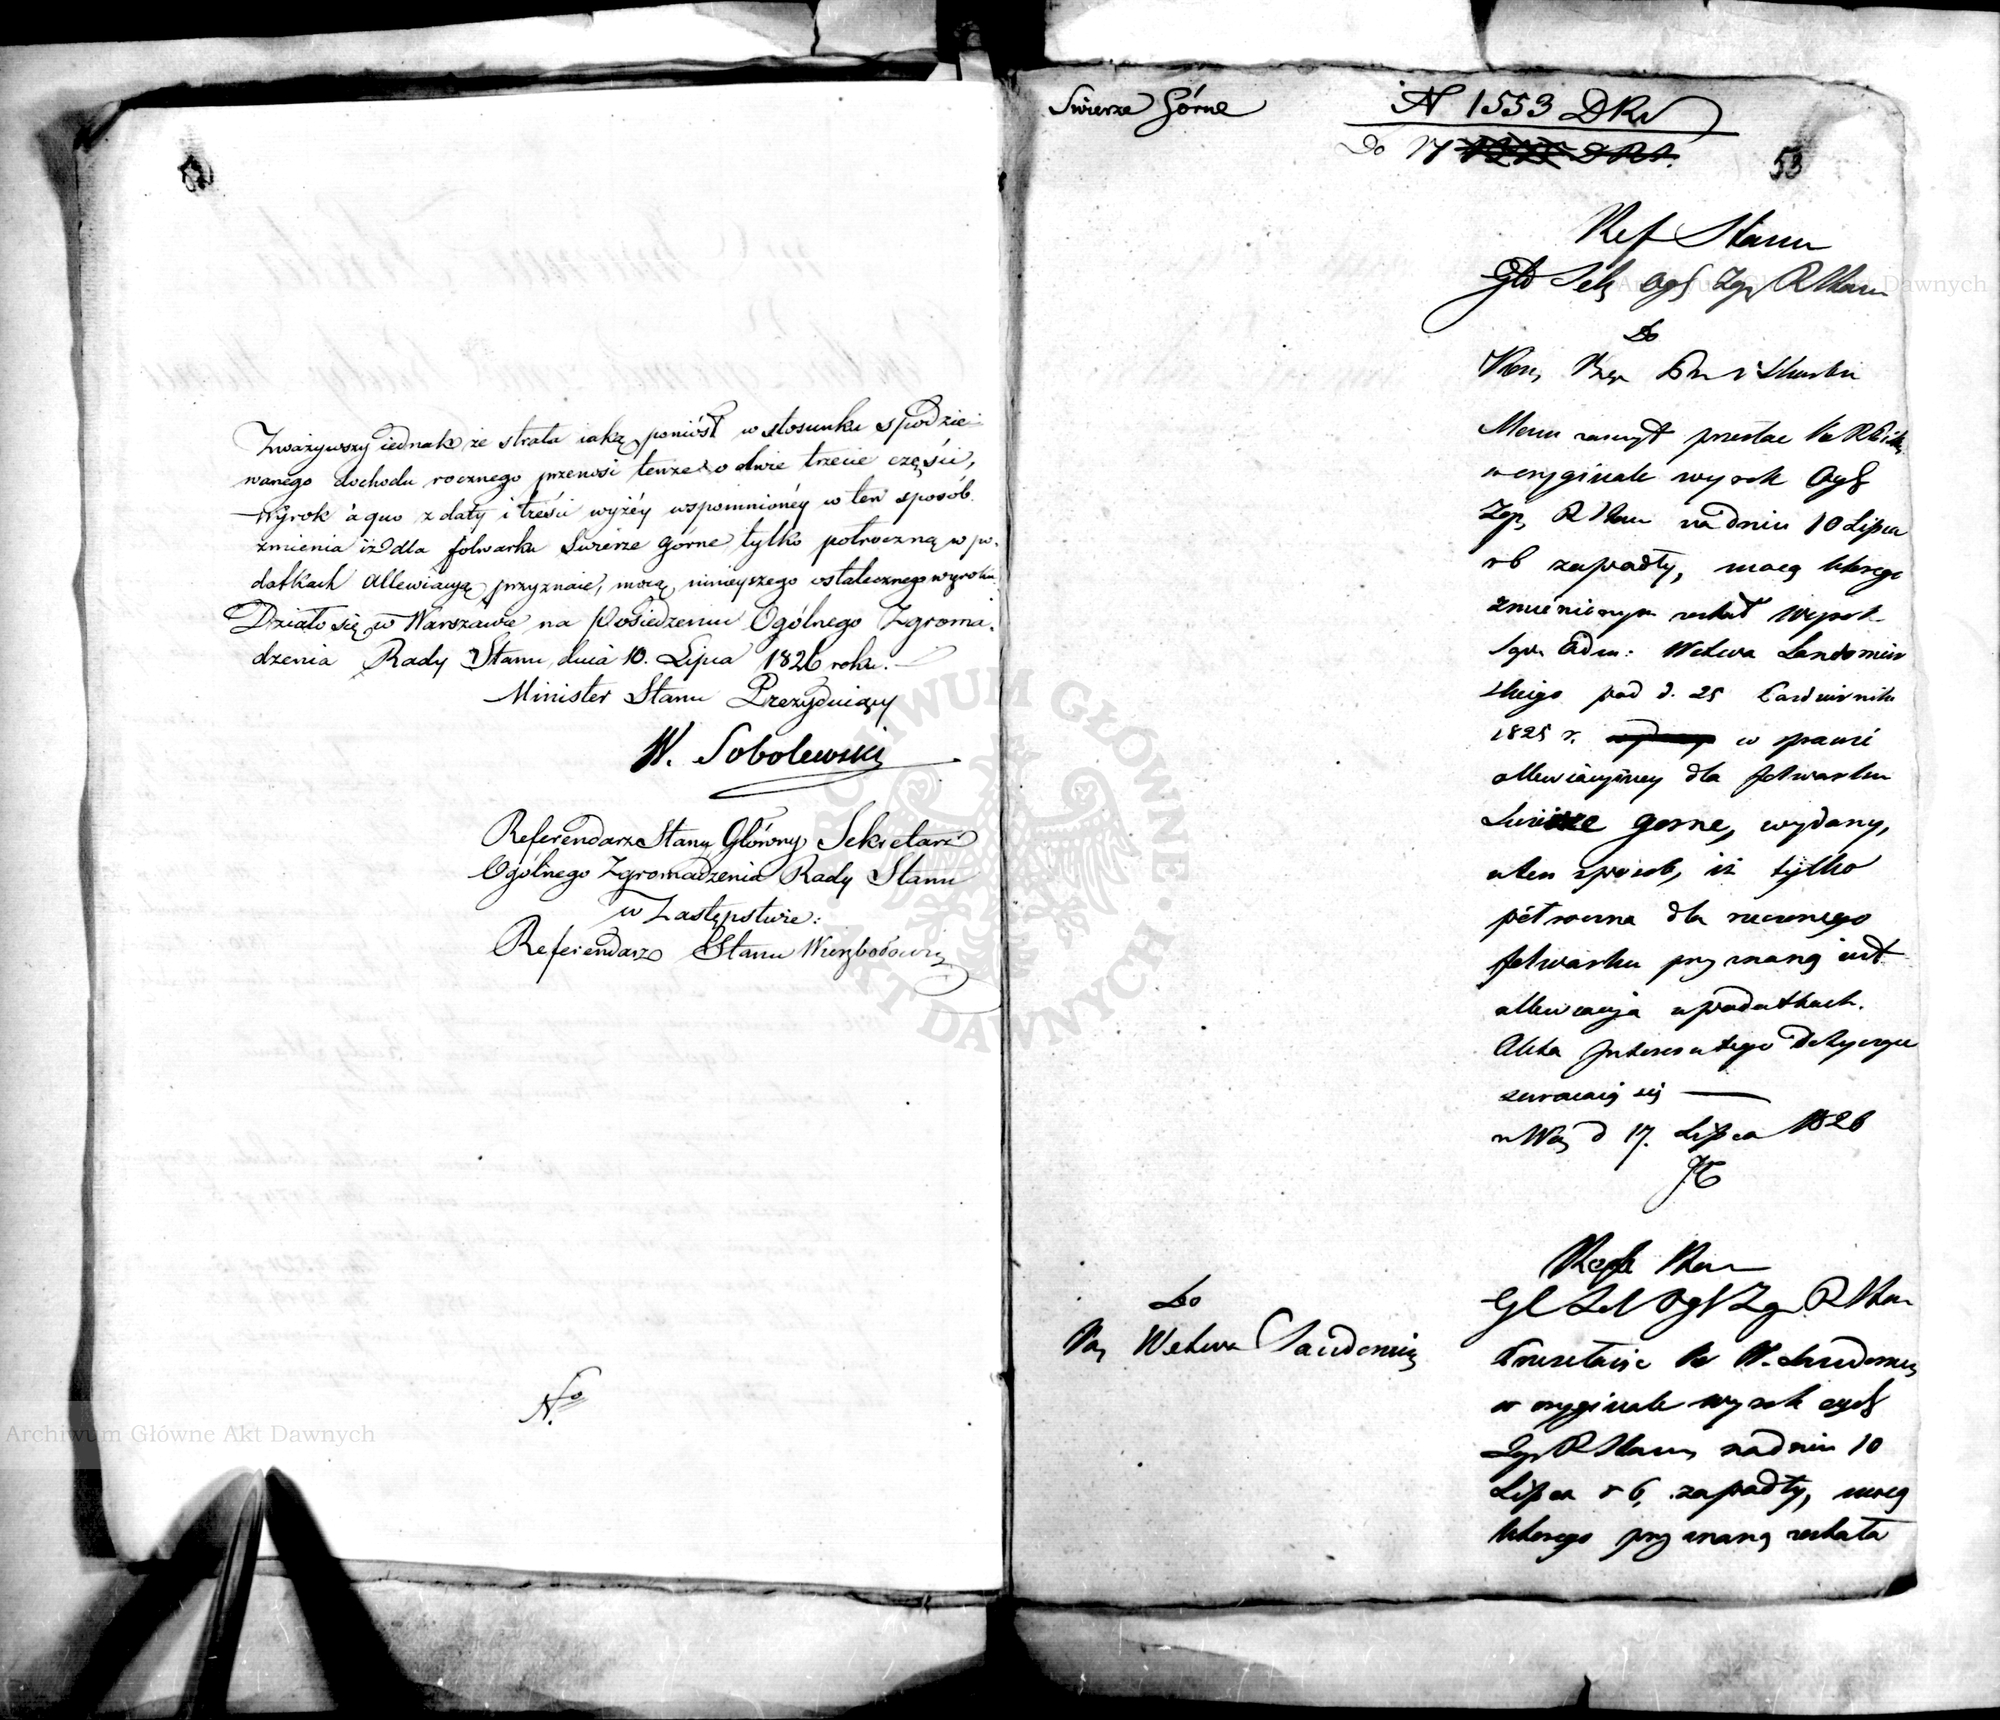 Zważywszy iednak że strata iaką poniósł w stosunku spodzie-
wanego dochodu rocznego przenosi tenże o dwie trzecie części,
wyrok à quo z daty i treści wyżéy wspomnionéy w ten sposób
zmienia iż dla folwarku Swierze górne tylko półroczną w po-
datkach allewiacyą przyznaie, mocą ninieyszego ostatecznego wyroku.
Działo się w Warszawie na Posiedzeniu Ogólnego Zgroma-
dzenia Rady Stanu dnia 10. Lipca 1826 roku.
Minister Stanu Prezyduiący
W. Sobolewski
Referendarz Stanu Główny Sekretarz
Ogólnego Zgromadzenia Rady Stanu
w Zastępstwie:
Referendarz Stanu Wierzbołowicz
No
Swierze Górne
N 1553 DRS
Do 17
53
Ref Stanu
Gło Sek Ogs Zgr R Stanu
Do
Kom Przy i Skarbu
Mam zaszczyt przesłać
w oryginale wyrok Ogs
Zgr R Stanu na dniu 10 Lipca
rb zapadły, mocą którego
zmienionym został Wyrok
Sądu Adm: Wdztwa Sandomir
skiego pod d. 25 Pazdziernika
1825 r. w sprawie
allewiacyiney dla folwarku
Swierze gorne, wydany,
w ten sposób, iż tylko
półroczna dla rzeczonego
folwarku przyznaną iest
allewiacyja w podatkach.
Akta Interesu tego dotyczące
zwracaią się
w War d 17. Lipca 1826
Refe Stanu
Gł Sek Ogs Zgr R Stanu
Do
Wdztwa Sandomirs
Przesłaie W. Sandomirs
w oryginale wyrok ogs
Zgr R Stanu na dniu 10
Lipca r b, zapadły, mocą
którego przyznaną została
Archiwum Główne Akt Dawnych
ARCHIWUM GŁÓWNE AKT DAWNYCH
Archiwum Główne Akt Dawnych